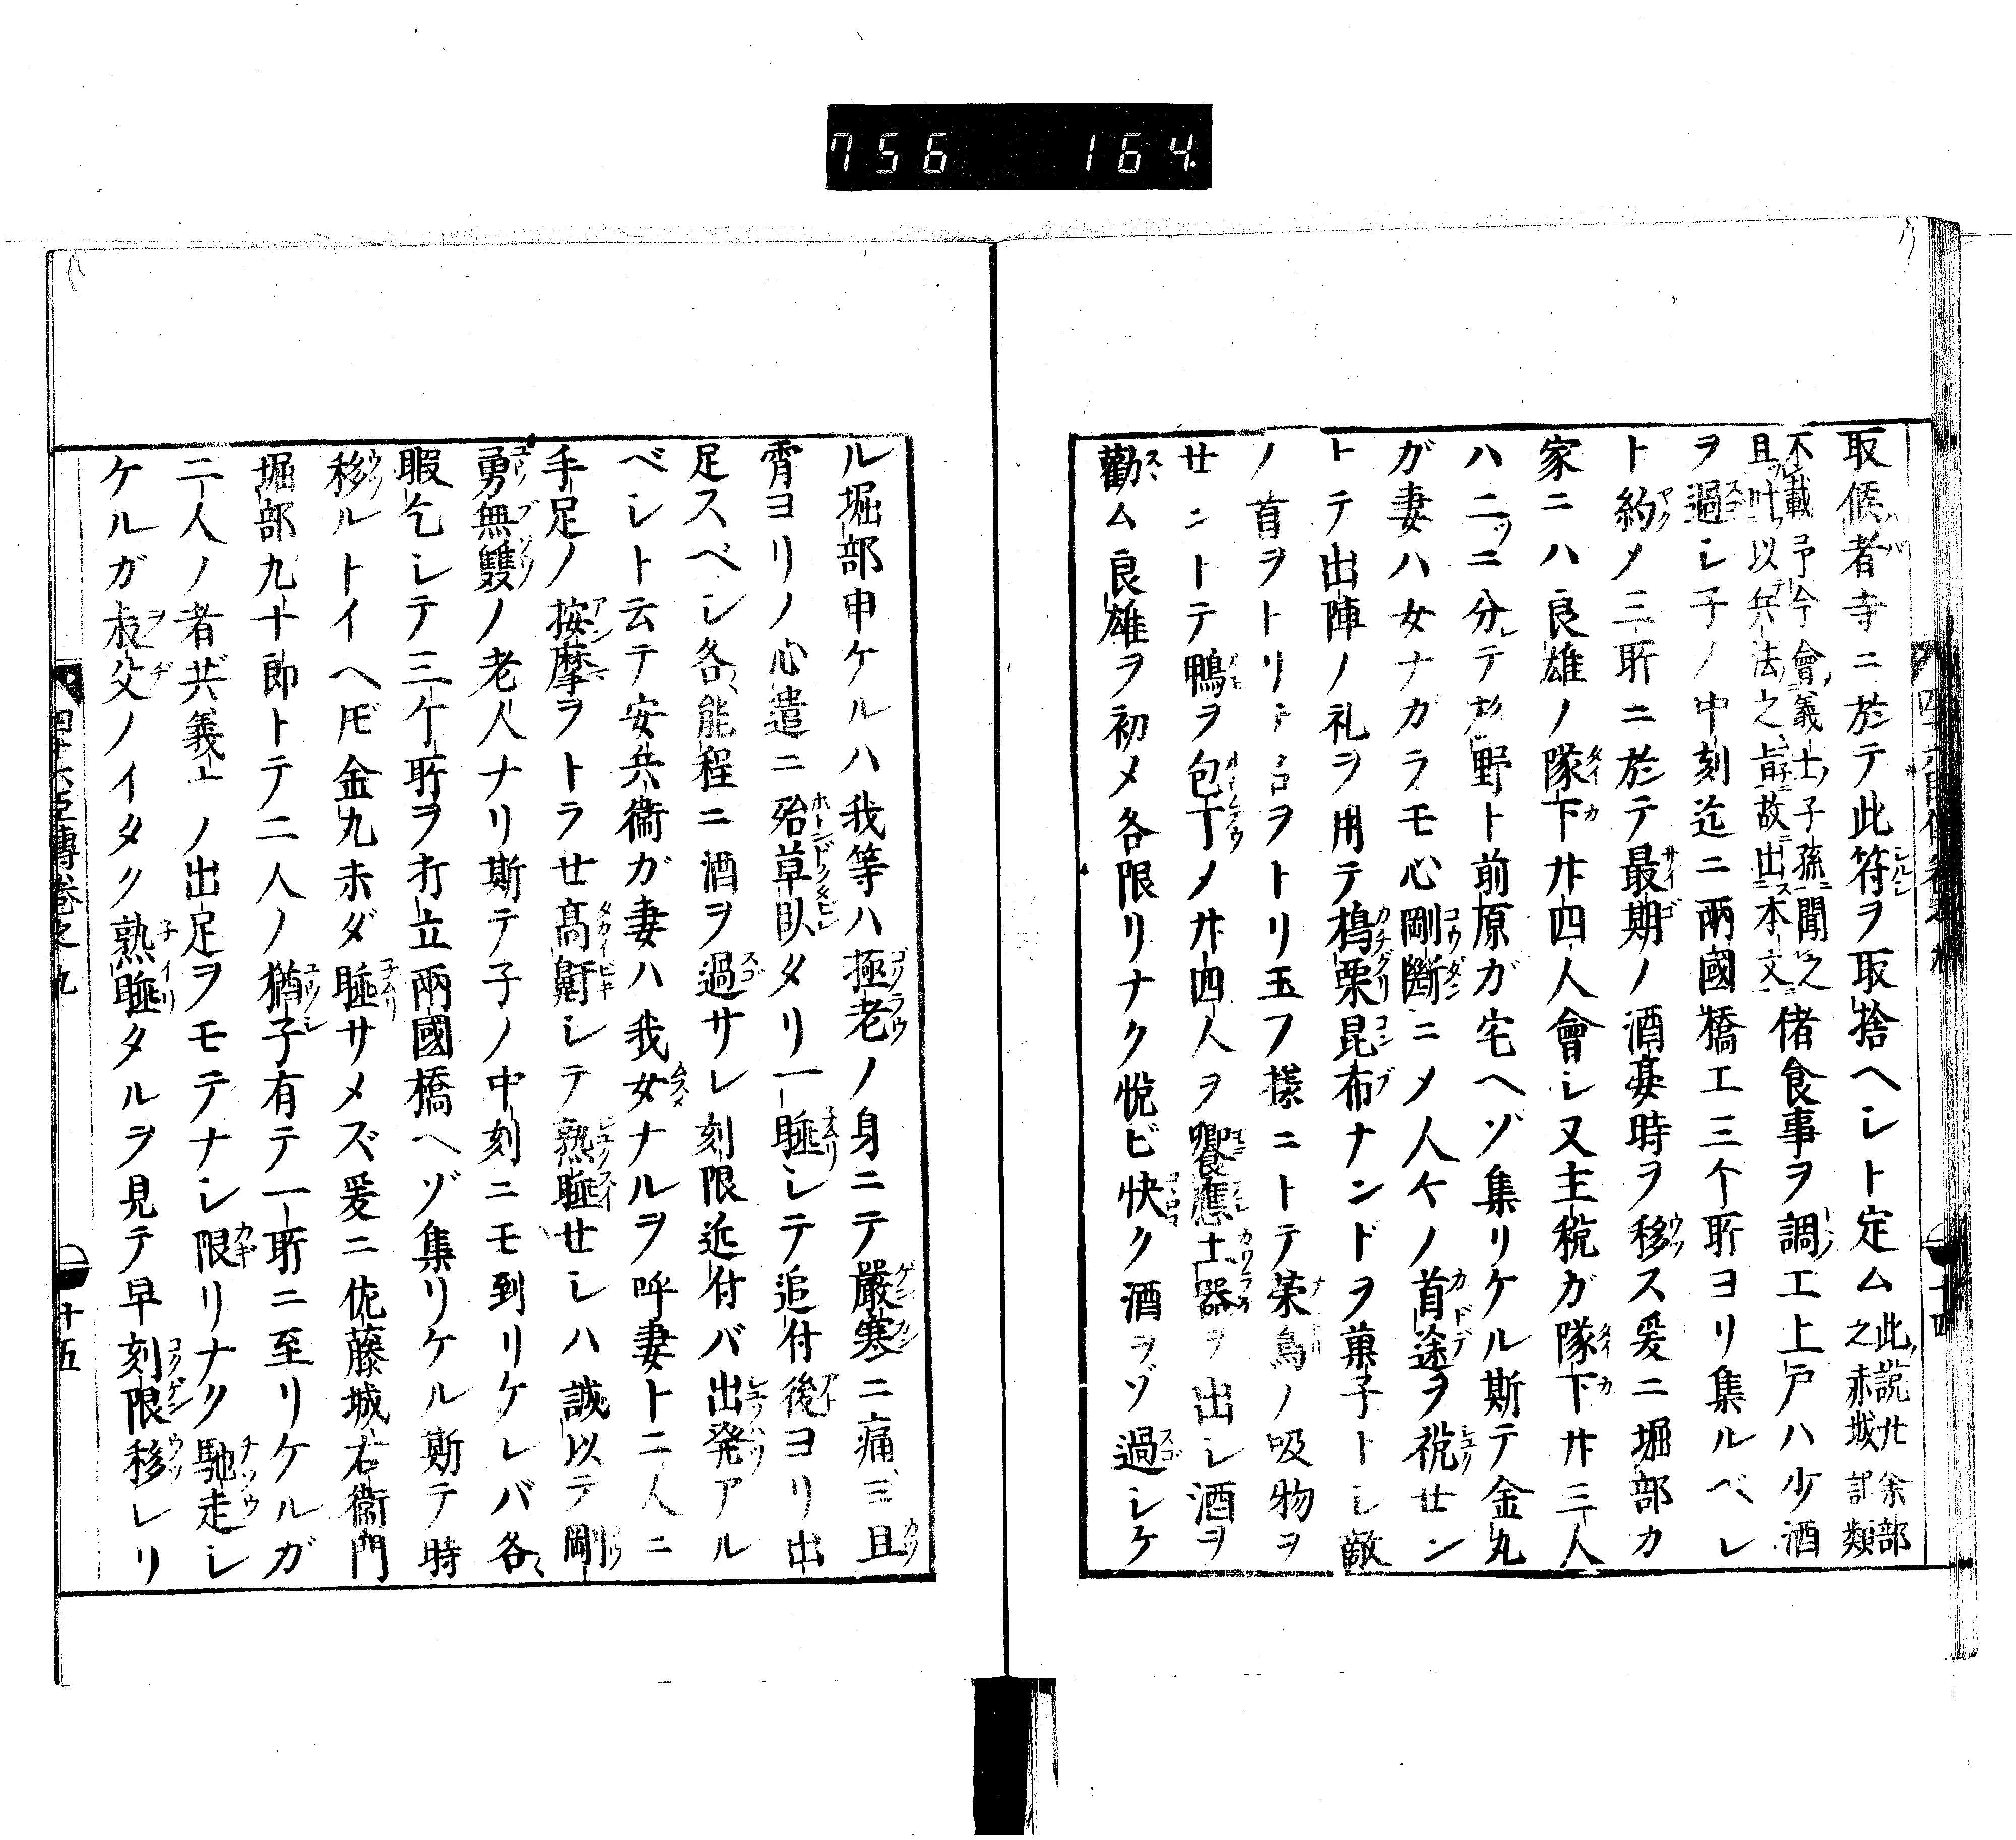 756 164
取候者寺ニ於テ此符ヲ取捨ヘシト定ム此説廿余部之赤城記類
不載予今會義士子孫聞之且叶以兵法之旨故出ス本文ニ偖食事ヲ調エ上戸ハ少酒
ヲ過シ子ノ中刻迄ニ兩國橋エ三个所ヨリ集ルベシ
ト約メ三所ニ於テ最期ノ酒宴時ヲ移ス爰ニ堀部カ
家ニハ良雄ノ隊下廿四人會シ又主税ガ隊下廿三人
ハ二ツニ分レテ杉野ト前原ガ宅ヘゾ集リケル斯テ金丸
ガ妻ハ女ナガラモ心剛斷ニメ人々ノ首途ヲ祝セン
トテ出陣ノ礼ヲ用テ搗栗昆布ナンドヲ菓子トシ敵
ノ首ヲトリ 名ヲトリ玉フ様ニトテ菜鳥ノ吸物ヲ
セントテ鴨ヲ包丁メ廿四人ヲ饗應土器ヲ出シ酒ヲ
勸ム良雄ヲ初メ各限リナク悦ビ快ク酒ヲゾ過シケ
四十六臣傳巻之九 十四
ル堀部申ケルハ我等ハ極老ノ身ニテ嚴寒ニ痛ミ且
宵ヨリノ心遣ニ殆草臥タリ一睡シテ追付後ヨリ出
足スベシ各能程ニ酒ヲ過サレ刻限近付バ出発アル
ベシト云テ安兵衞ガ妻ハ我女ナルヲ呼妻ト二人ニ
手足ノ按摩ヲトラせ高鼾シテ熟睡せシハ誠以テ剛
勇無雙ノ老人ナリ斯テ子ノ中刻ニモ到リケレバ各
暇乞シテ三ケ所ヲ打立兩國橋ヘゾ集リケル斯テ時
移ルトイヘ𪜈金丸未ダ睡サメズ爰ニ佐藤城右衞門
堀部九十郎トテ二人ノ猶子有テ一所ニ至リケルガ
二人ノ者共義士ノ出足ヲモテナシ限リナク馳走シ
ケルガ叔父ノイタク熟睡タルヲ見テ早刻限移レリ
四十六臣傳巻之九 十五